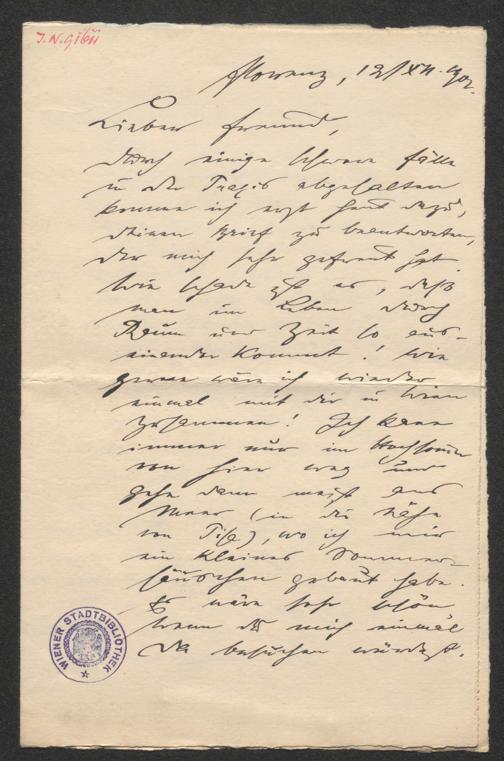 J.N. 91611
Florenz, 12/XII. 902.
Lieber Freund,
durch einige schwere Fälle
in der Praxis abgehalten
komme ich erst heut dazu,
deinen Brief zu beantworten,
der mich sehr gefreut hat.
Wie schade ist es, daß
man im Leben durch
Raum und Zeit so aus-
einander kommt! Wie
gerne wäre ich wieder
einmal mit dir in Wien
zusammen! Ich kann
immer nur im Hochsommer
von hier weg und
gehe dann meist ans
Meer (in die Nähe
von Pisa), wo ich mir
ein kleines Sommer-
häuschen gebaut habe.
Es wäre sehr schön,
wenn du mich einmal
da besuchen würdest.
WIENER STADTBIBLIOTHEK